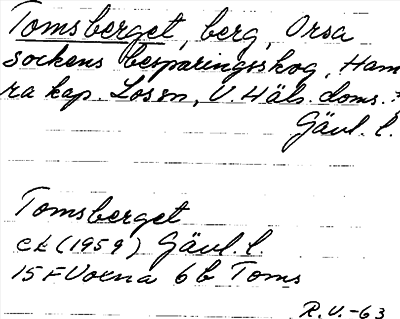 Tomsberget, berg, Orsa
sockens besparingsskog, Ham
ra kap. Lossn, V. Häls. doms.
Gävl. l.
Tomsberget
ek (1959) Gävl. l
15F Voxna 6b Toms
R.V.-63